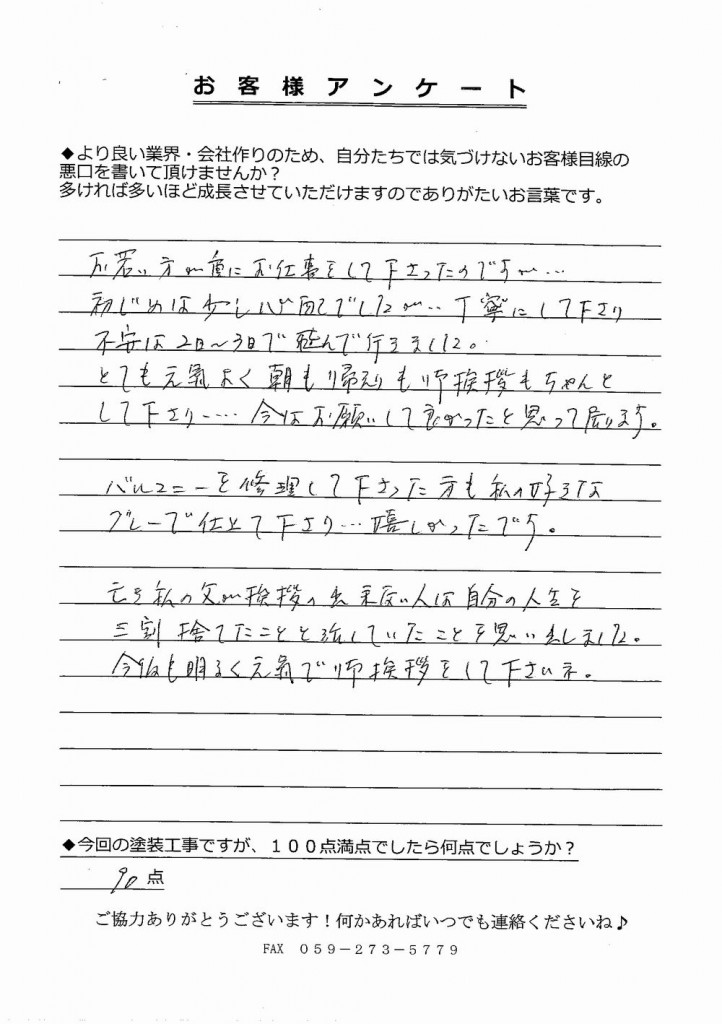 お客様アンケート
◆より良い業界・会社作りのため、自分たちでは気づけないお客様目線の
悪口を書いて頂けませんか?
多ければ多いほど成長させていただけますのでありがたいお言葉です。
お若い方が重にお仕事をして下さったのですが…
初じめは少し心配でしたが‥丁寧にして下さり
不安は2日～3日で飛んで行きました。
とても元氣よく朝も帰えりも御挨拶もちゃんと
して下さり……今はお願いして良かったと思って居ります。
バルコニーを修理して下さった方も私の好きな
グレーで仕立て下さり…嬉しかったです。
亡き私の父が挨拶の出来ない人は自分の人生を
三割捨てたことと話していたことを思い出しました。
今後も明るく元氣で御挨拶をして下さいネ。
◆今回の塗装工事ですが、１００点満点でしたら何点でしょうか？
90点
ご協力ありがとうございます！何かあればいつでも連絡くださいね♪
FAX ０５９－２７３－５７７９